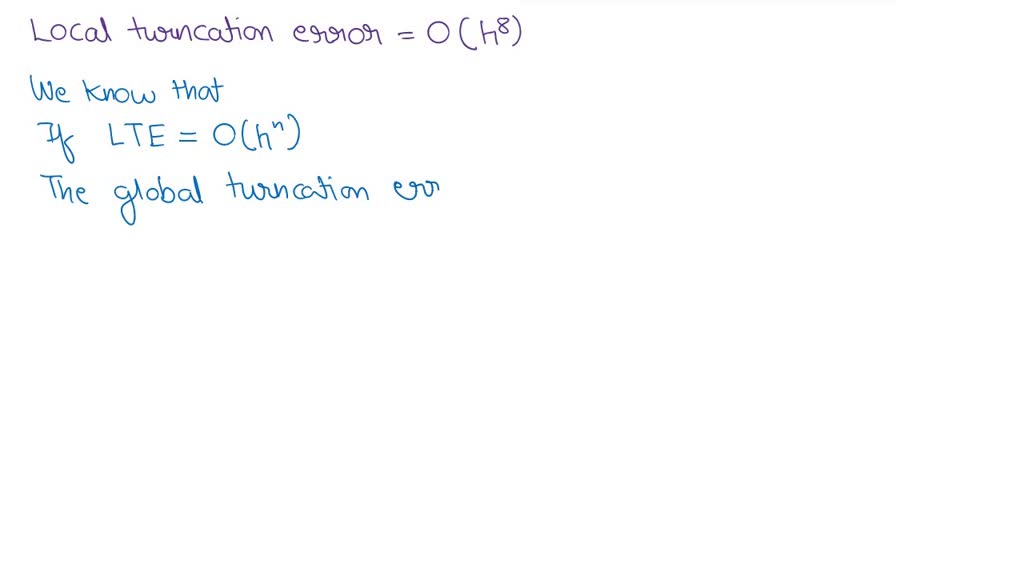 Local turncation error = O(h⁸)
We know that
If LTE = O(hⁿ)
The global turncation err